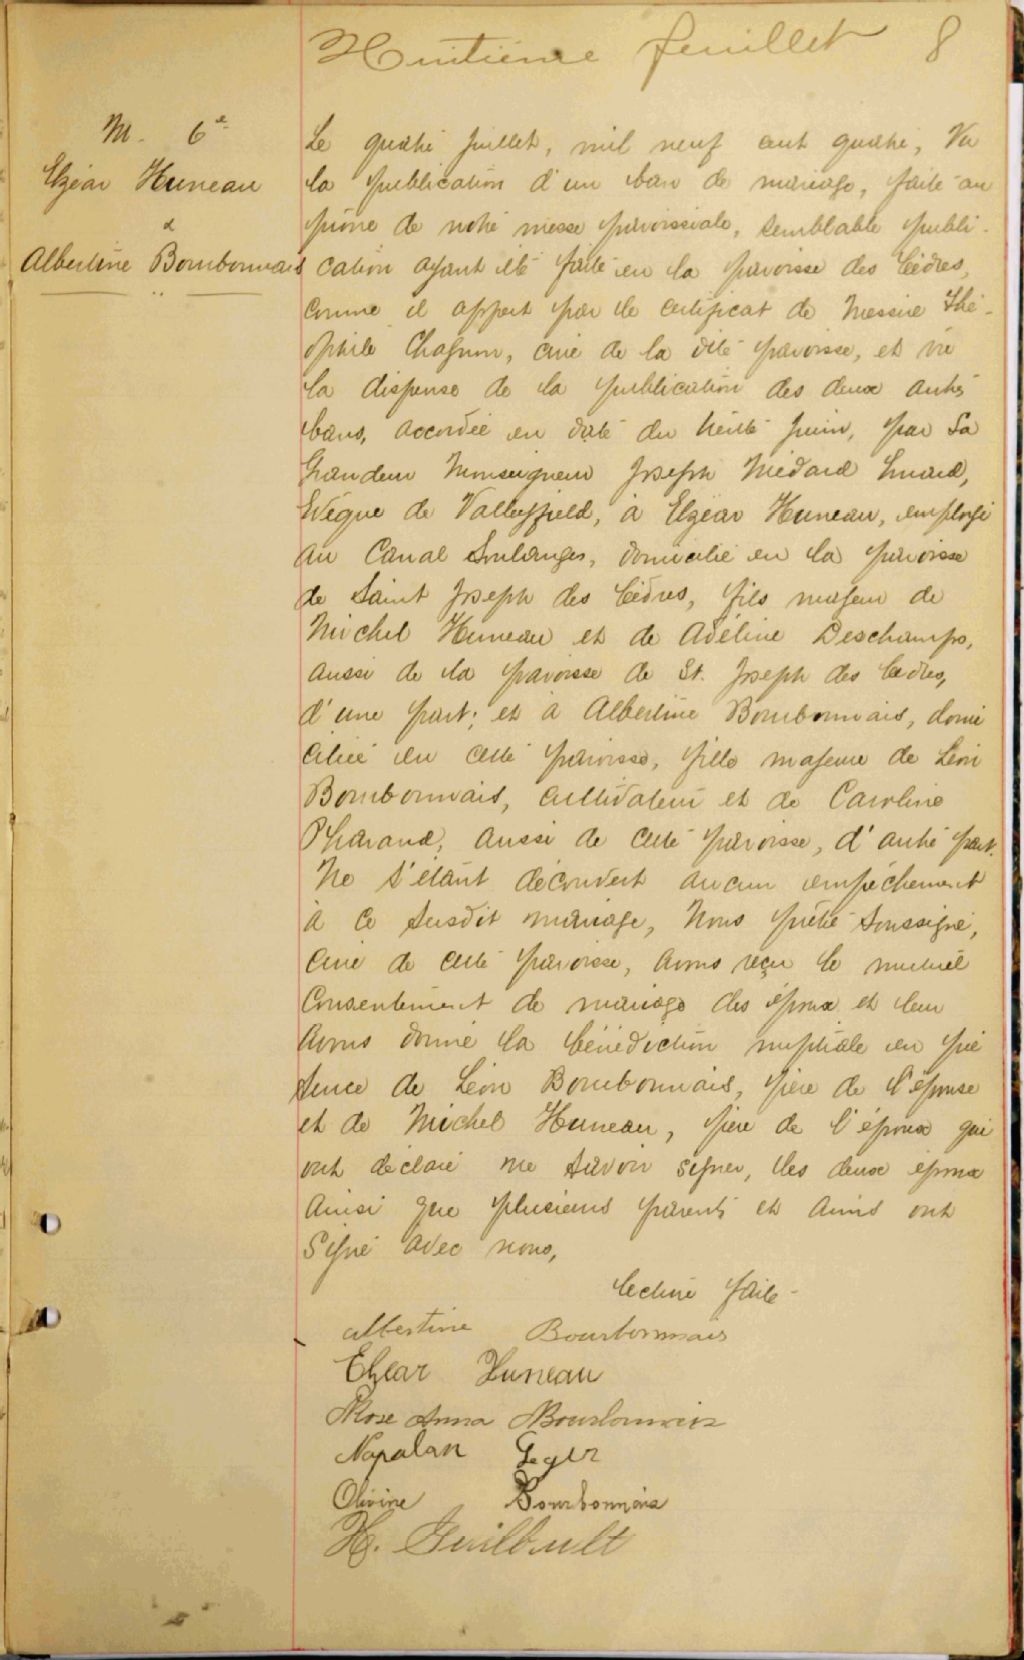 Huitième feuillet 8
M. 6e
Elzéar Huneau
&
Albertine Bourbonnais
Le quatre juillet, mil neuf cent quatre, Vu
la publication d'un ban de mariage, faite au
prône de notre messe paroissiale, semblable publi-
cation ayant été faite en la paroisse des Cèdres,
comme il appert par le certificat de Messire Thé-
ophile Chagnon, curé de la dite paroisse, et vu
la dispense de la publication des deux autres
bans, accordée en date du trente juin, par Sa
Grandeur Monseigneur Joseph Médard Emard,
Evêque de Valleyfield, à Elzéar Huneau, employé
au Canal Soulanges, domicilié en la paroisse
de Saint Joseph des Cèdres, fils majeur de
Michel Huneau et de Adéline Deschamps,
aussi de la paroisse de St. Joseph des Cèdres,
d'une part; et à Albertine Bourbonnais, domi
ciliée en cette paroisse, fille majeure de Léon
Bourbonnais, cultivateur et de Caroline
Pharand, aussi de cette paroisse, d'autre part.
Ne s'étant découvert aucun empêchement
à ce susdit mariage, Nous prêtre soussigné,
curé de cette paroisse, avons reçu le mutuel
consentement de mariage des époux et leur
avons donné la bénédiction nuptiale en pré
sence de Léon Bourbonnais, père de l'épouse
et de Michel Huneau, père de l'époux qui
ont déclaré ne savoir signer, les deux époux
ainsi que plusieurs parents et amis ont
signé avec nous,
Lecture faite -
Albertine Bourbonnais
Elzear Huneau
Rose Anna Bourbonnais
Napolan Leger
Olivine Bourbonnais
H. Guilbault